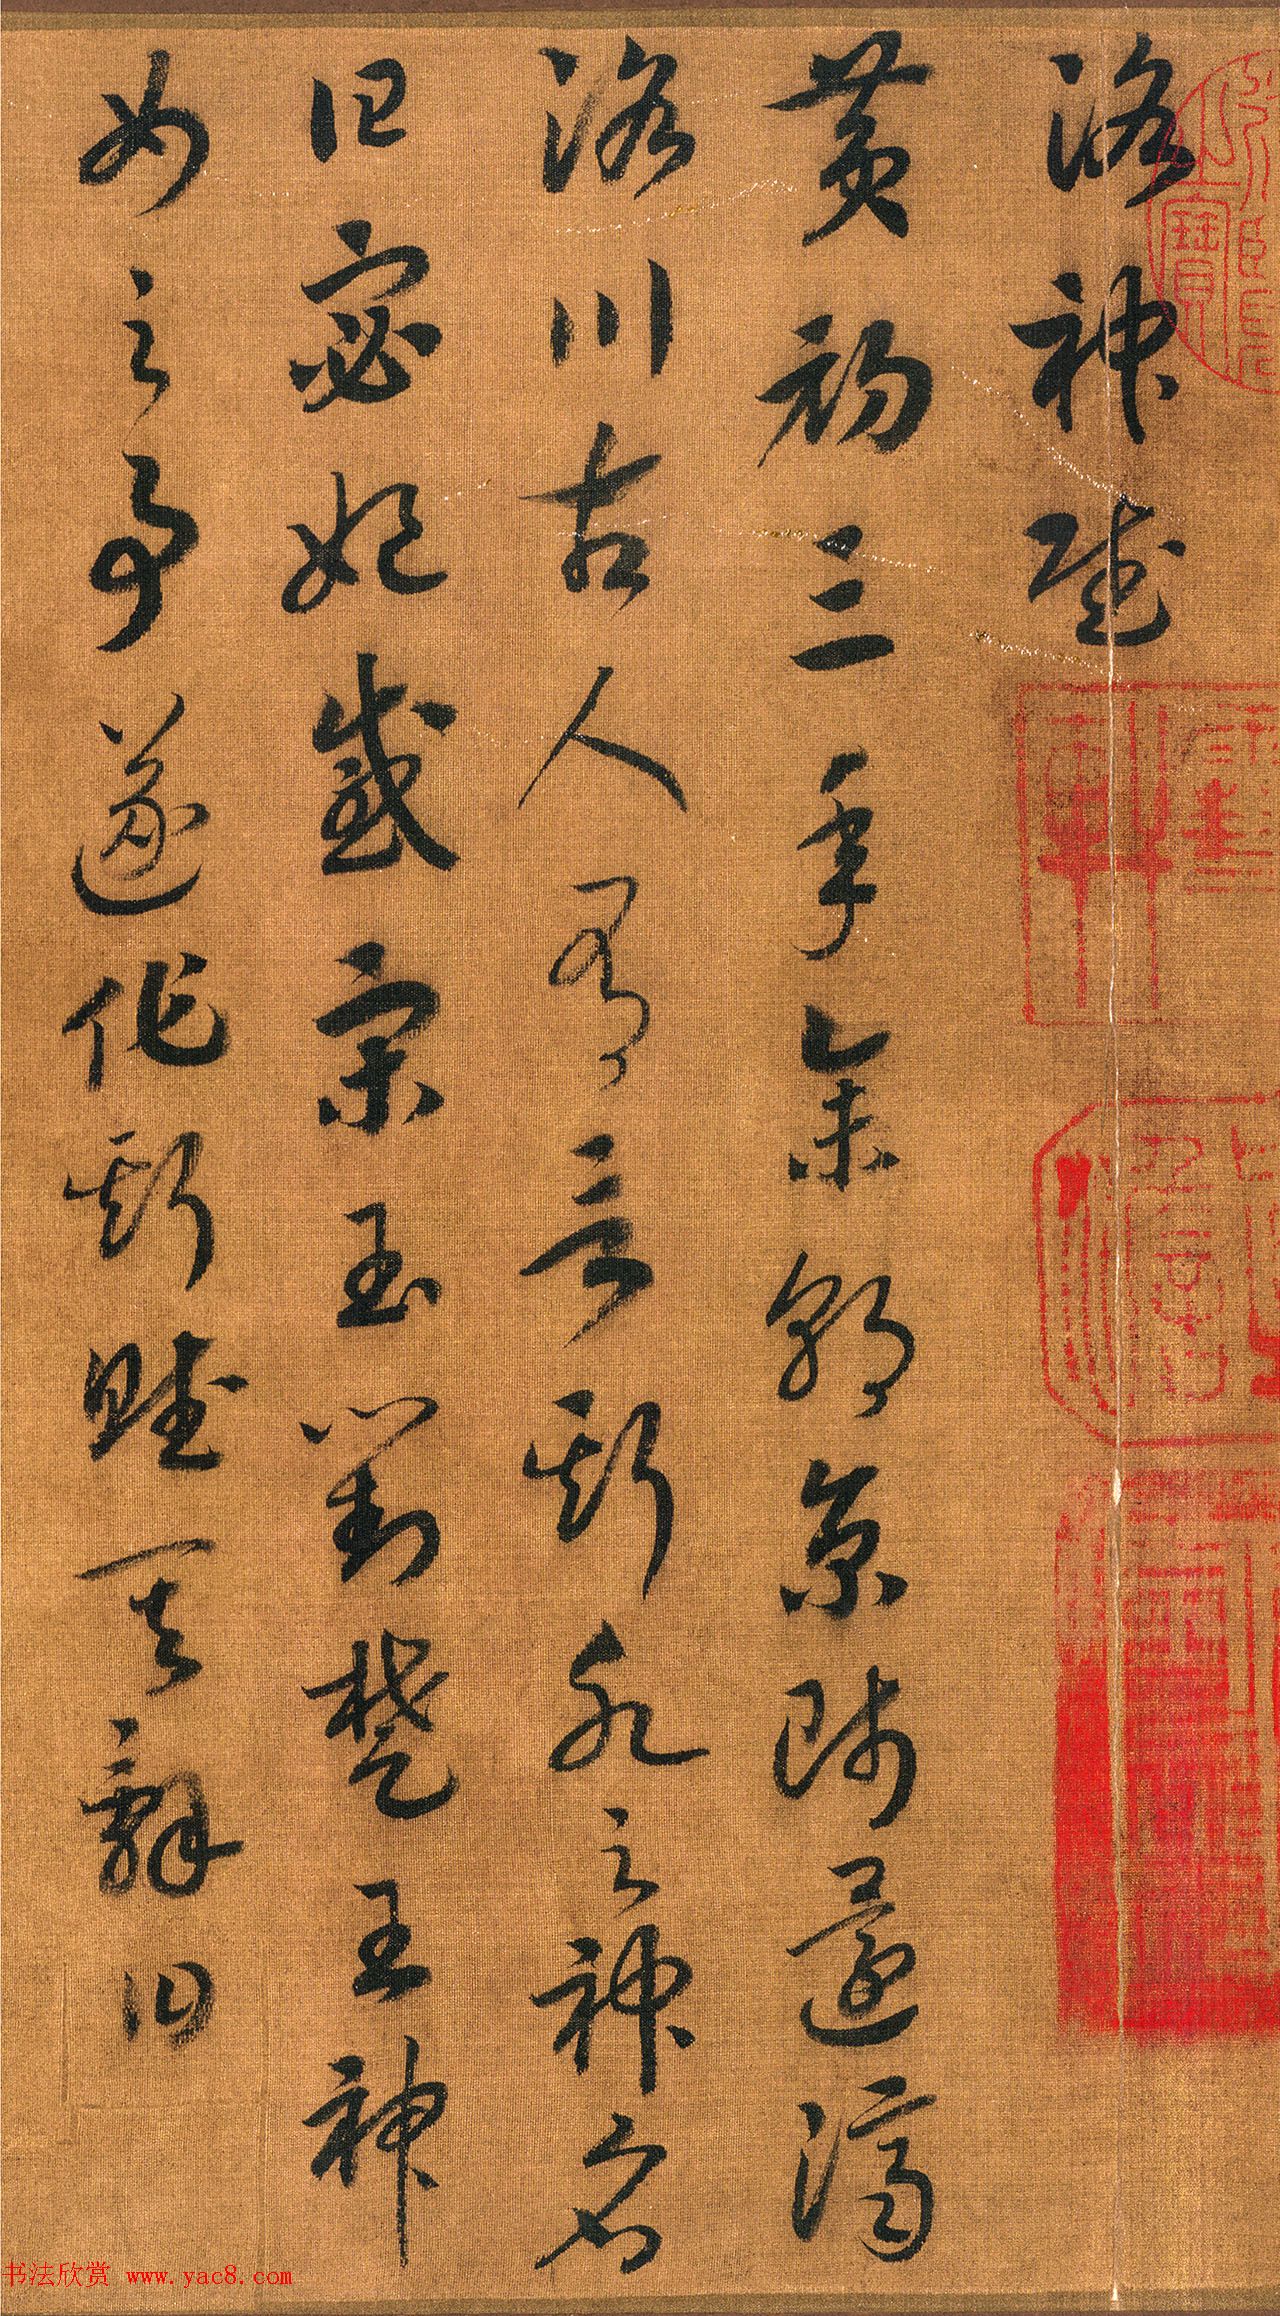 洛神賦
黄初三年余朝京師還濟
洛川古人有言斯水之神名
曰宓妃感宋玉對楚王神
女之事遂作斯賦其辭曰
书法欣赏 www.yac8.com